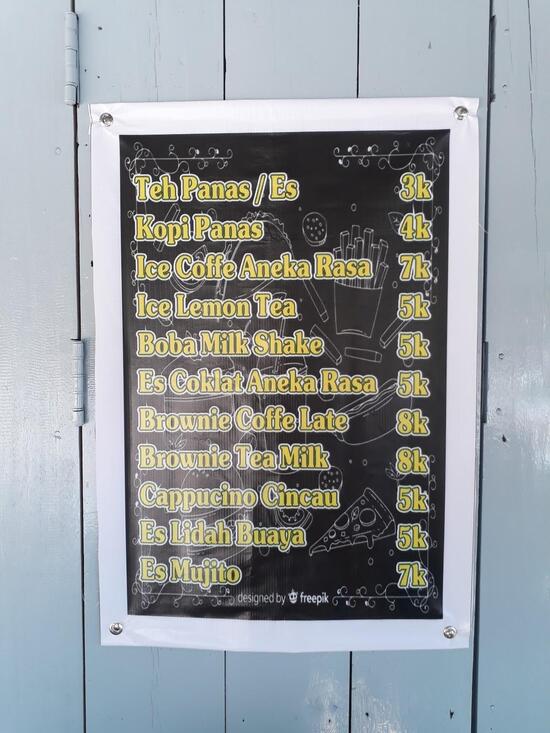 Teh Panas / Es 3k
Kopi Panas 4k
Ice Coffe Aneka Rasa 7k
Ice Lemon Tea 5k
Boba Milk Shake 5k
Es Coklat Aneka Rasa 5k
Brownie Coffe Late 8k
Brownie Tea Milk 8k
Cappucino Cincau 5k
Es Lidah Buaya 5k
Es Mujito 7k
designed by freepik